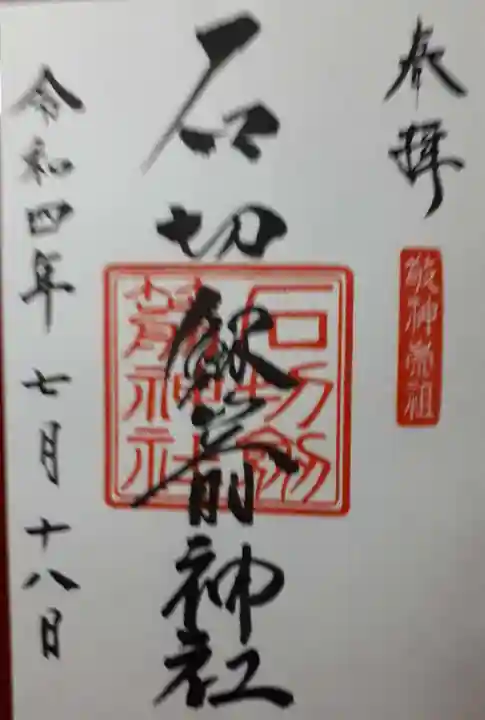 奉拝
敬神崇祖
石切劔箭神社
石切劔
箭神社
令和四年七月十八日